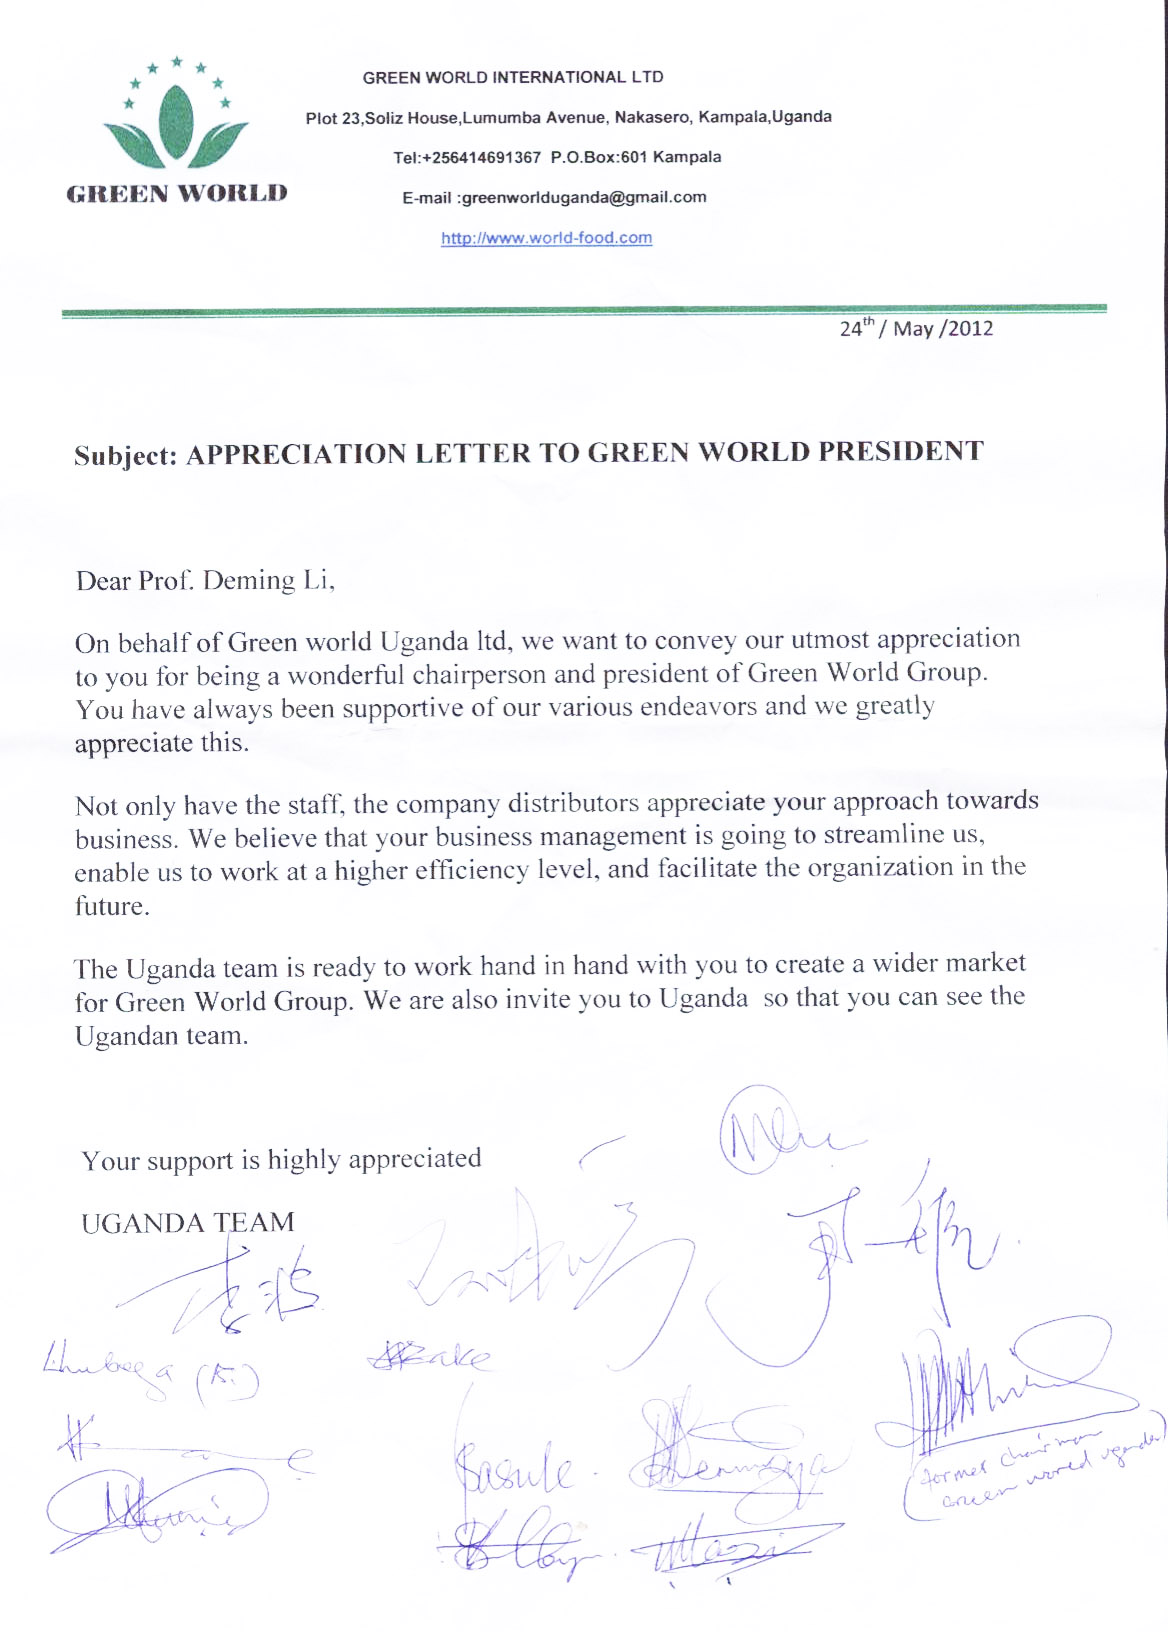 GREEN WORLD
GREEN WORLD INTERNATIONAL LTD
Plot 23,Soliz House,Lumumba Avenue, Nakasero, Kampala,Uganda
Tel:+256414691367 P.O.Box:601 Kampala
E-mail :greenworlduganda@gmail.com
http://www.world-food.com
24th / May /2012
Subject: APPRECIATION LETTER TO GREEN WORLD PRESIDENT
Dear Prof. Deming Li,
On behalf of Green world Uganda ltd, we want to convey our utmost appreciation
to you for being a wonderful chairperson and president of Green World Group.
You have always been supportive of our various endeavors and we greatly
appreciate this.
Not only have the staff, the company distributors appreciate your approach towards
business. We believe that your business management is going to streamline us,
enable us to work at a higher efficiency level, and facilitate the organization in the
future.
The Uganda team is ready to work hand in hand with you to create a wider market
for Green World Group. We are also invite you to Uganda so that you can see the
Ugandan team.
Your support is highly appreciated
UGANDA TEAM
Kasule.
(former chairman
Green world uganda)